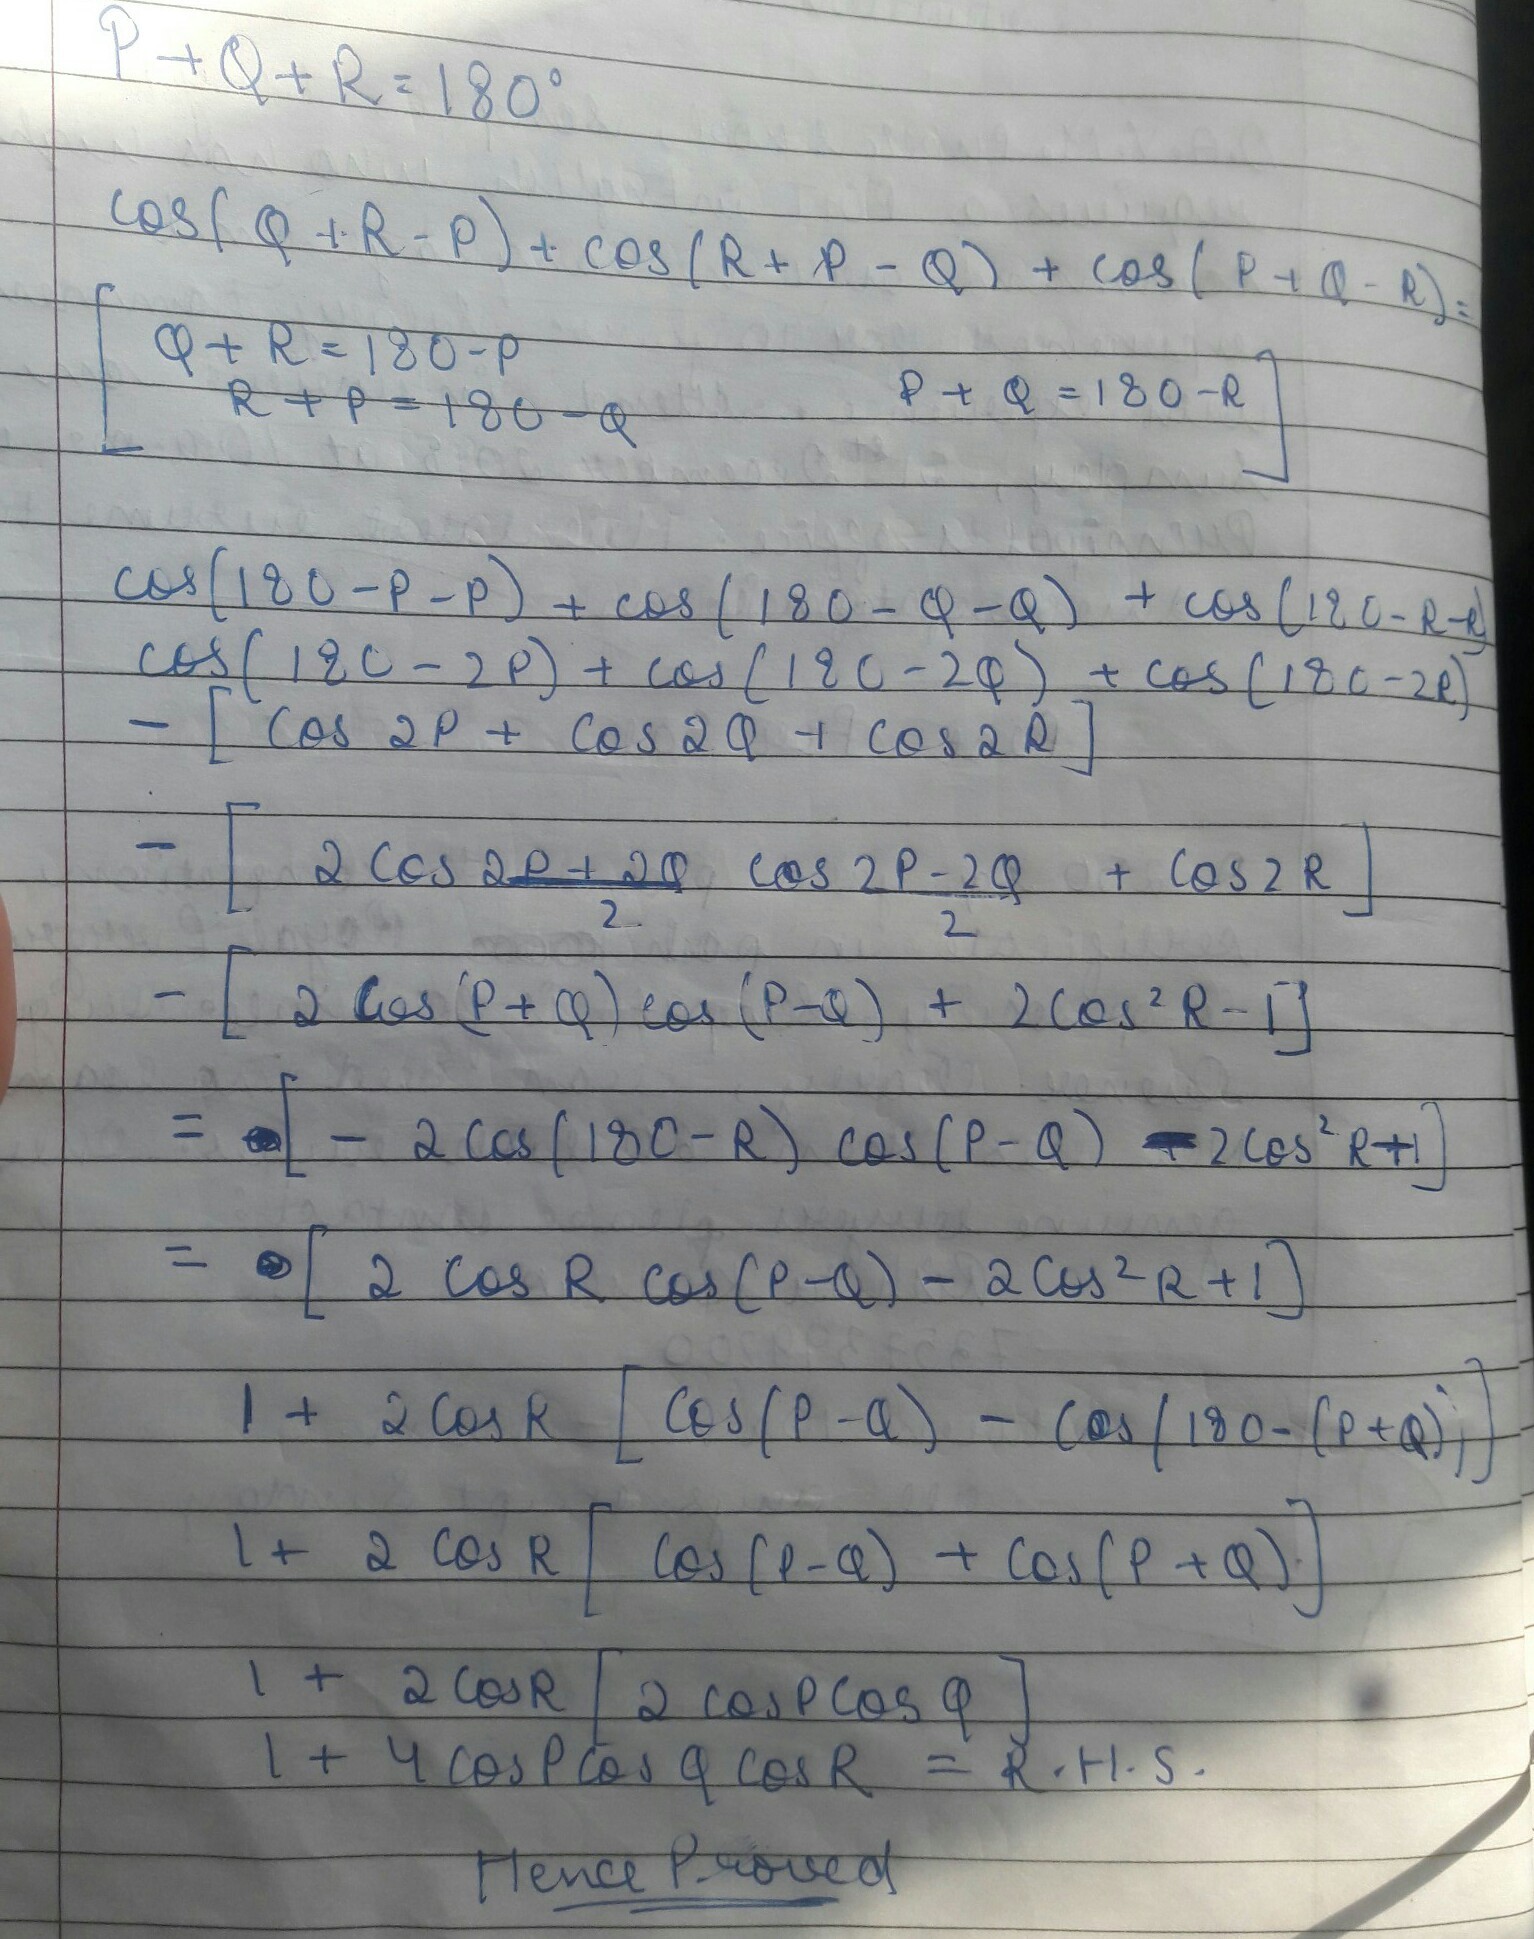 P + Q + R = 180°
cos(Q + R - P) + cos(R + P - Q) + cos(P + Q - R) =
[ Q + R = 180 - P
R + P = 180 - Q P + Q = 180 - R ]
cos(180 - P - P) + cos(180 - Q - Q) + cos(180 - R - R)
cos(180 - 2P) + cos(180 - 2Q) + cos(180 - 2R)
- [ cos 2P + cos 2Q + cos 2R ]
- [ 2 cos (2P + 2Q)/2 cos (2P - 2Q)/2 + cos 2R ]
- [ 2 cos(P + Q) cos(P - Q) + 2 cos² R - 1 ]
= [ - 2 cos(180 - R) cos(P - Q) - 2 cos² R + 1 ]
= [ 2 cos R cos(P - Q) - 2 cos² R + 1 ]
1 + 2 cos R [ cos(P - Q) - cos(180 - (P + Q)) ]
1 + 2 cos R [ cos(P - Q) + cos(P + Q) ]
1 + 2 cos R [ 2 cos P cos Q ]
1 + 4 cos P cos Q cos R = R.H.S.
Hence Proved